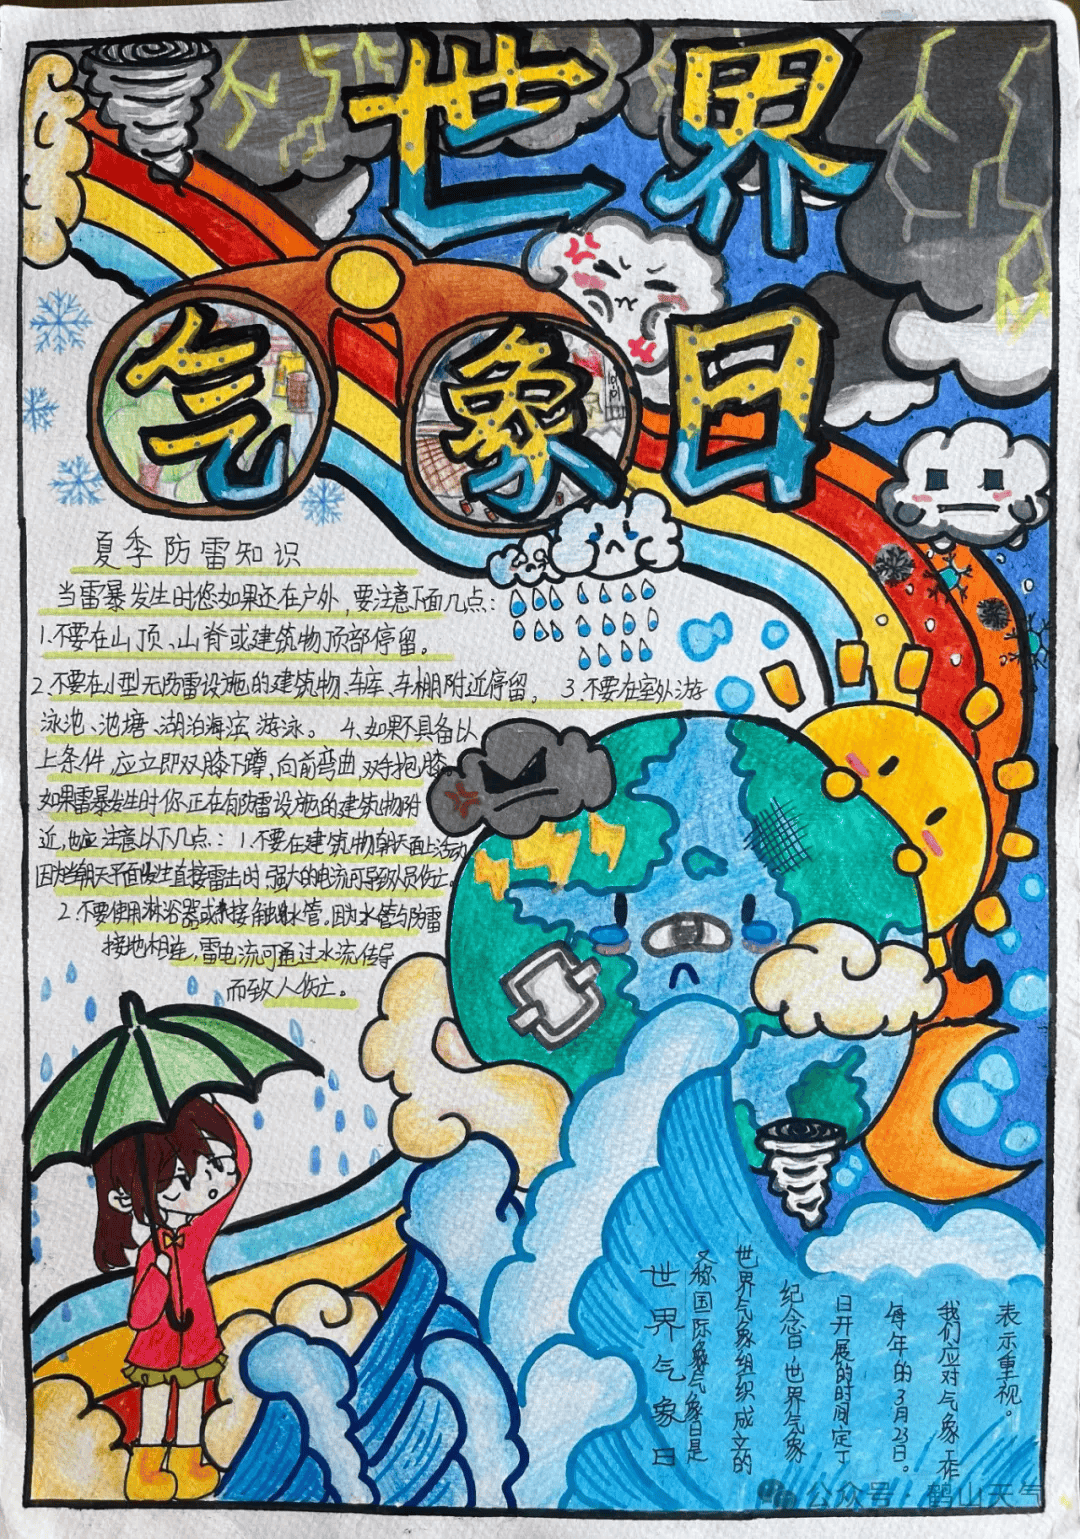 世界
气象日
夏季防雷知识
当雷暴发生时您如果还在户外,要注意下面几点:
1.不要在山顶、山脊或建筑物顶部停留。
2.不要在小型无防雷设施的建筑物、车库、车棚附近停留。 3.不要在室外游
泳池、池塘、湖泊海滨游泳。 4.如果不具备以
上条件,应立即双膝下蹲,向前弯曲,双手抱膝。
如果雷暴发生时你正在有防雷设施的建筑物附
近,也应注意以下几点: 1.不要在建筑物朝天面上活动
因为朝天平面发生直接雷击时,强大的电流可导致人员伤亡。
2.不要使用淋浴器或接触水管。因为水管与防雷
接地相连,雷电流可通过水流传导
而致人伤亡。
世界气象日
又称国际气象日是
世界气象组织成立的
纪念日,世界气象
日开展的时间定于
每年的3月23日。
我们应对气象工作
表示重视。
公众号·鹤山天气